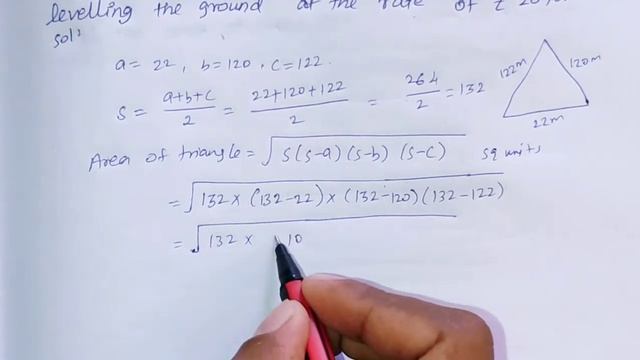 levelling the ground at the rate of ₹ 20/
sol:
a = 22, b = 120, c = 122.
S = a+b+c/2 = 22+120+122/2 = 264/2 = 132
122m
120m
22m
Area of triangle = √S(S-a)(S-b)(S-c) sq units
= √132 × (132-22) × (132-120)(132-122)
= √132 × 110